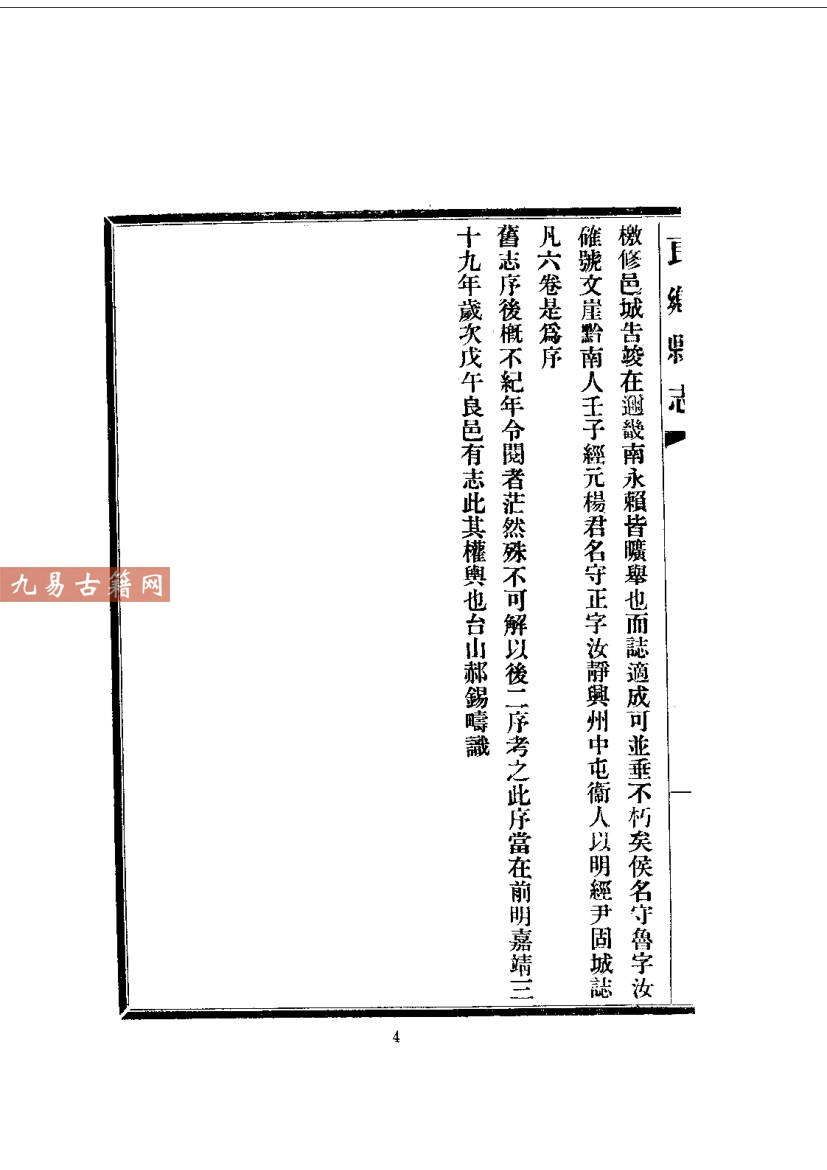 良鄉縣志
檄修邑城告竣在邇畿南永賴皆曠舉也而誌適成可並垂不朽矣侯名守魯字汝
確號文崖黔南人壬子經元楊君名守正字汝靜興州中屯衞人以明經尹固城誌
凡六卷是爲序
舊志序後槪不紀年令閱者茫然殊不可解以後二序考之此序當在前明嘉靖三
十九年歲次戊午良邑有志此其權輿也台山郝錫疇識
九易古籍网
4